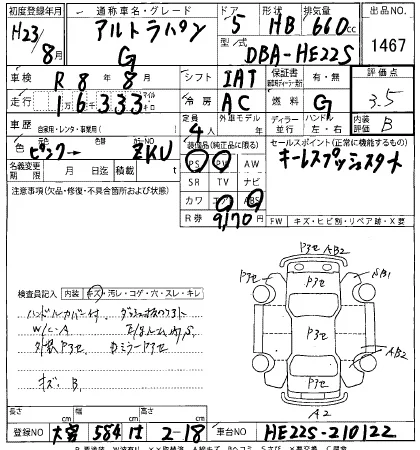 初度登録年月 通称車名・グレード ドア 形状 排気量 出品NO
H23/8月 アルトラパン G 5 HB 660cc 1467
型式 DBA-HE22S
車検 R8年8月 シフト IAT 保証書 有・無 評価点
走行 16,333 km マイル 冷房 AC 燃料 G 3.5
車歴 自家用・レンタ・事業用( ) 定員 4人 外車モデル 年 ディーラー 並行 ハンドル 左・右 内装評価 B
色 ピンク→ 色替 カラーNO ZKU 装備品(純正品に限る) セールスポイント(正常に機能するもの)
名義変更期限 月 日迄 積載 t PS PW AW キーレスプッシュスタート
注意事項(欠品・修復・不具合箇所および状態) SR TV ナビ
カワ エアB ABS
R券 9170円 FW キズ・ヒビ割・リペア跡・X要
P3セ AB2
P3セ P3セ AB1
検査員記入 内装 キズ・汚レ・コゲ・穴・スレ・キレ
ハンドルカバー付
W/C・A P3セ
外装P3セ ドミラーP3セ
AB2
キズ、B P3セ P3セ
A2
長さ cm 幅 cm 高さ cm
登録NO 584 は 2-18 車台NO HE22S-210122